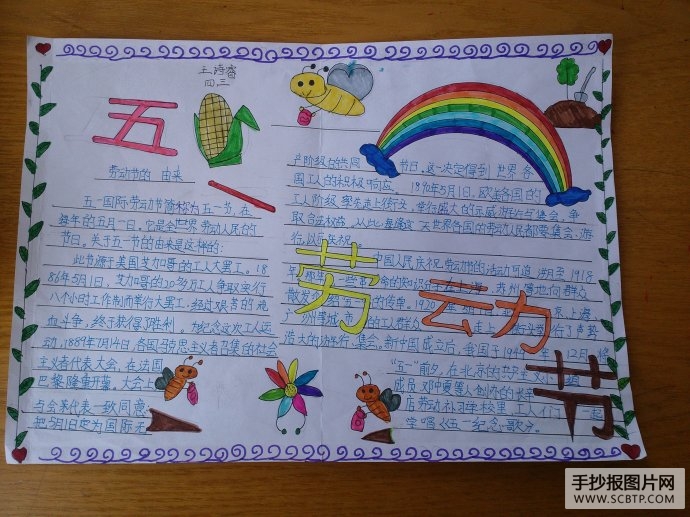 五一
劳动节
王海蓉
四三
劳动节的 由来
五一国际劳动节简称为五一节,在
每年的五月一日。它是全世界 劳动人民的
节日。关于五一节的由来是这样的:
此节源于美国芝加哥的工人大罢工。18
86年5月1日,芝加哥的20多万工人争取实行
八个小时工作制而举行大罢工,经过艰苦的流
血斗争,终于获得了胜利。为纪念这次工人运
动,1889年7月14日,各国马克思主义者召集的社会
主义者代表大会,在法国
巴黎隆重开幕。大会上
与会来代表一致同意
把5月1日定为国际无
产阶级的共同 节日。这一决定得到 世界各
国工人的积极响应。1890年5月1日,欧美各国的
工人阶级率先走上街头,举行盛大的示威游行与集会,争
取合法权益。从此,每逢这天世界各国的劳动人民都要集会、游
行,以示庆祝。
中国人民庆祝劳动节的活动可追溯至1918
年 命的知识分子在上海、苏州
散发 的传单。1920年
广州 的工人群众 走上街头 行了声势
浩大的游行、集会。新中国成立后,我国于1949年 12月将
“五一”前夕,在北京的共产主义小组
成员邓中夏等人创办的长辛
店劳动补习学校里,工人们一起
学唱《五一纪念》歌分。
手抄报图片网
WWW.SCBTP.COM